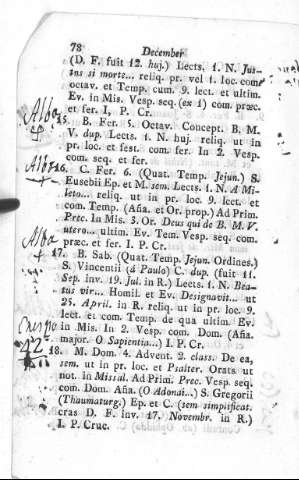 78 December
(D. F. fuit 12. huj.) Lects. 1. N. Jus-
tus si morte... reliq. pr. vel 1. loc. com.
octav. et Temp. cum. 9. lect. et ultim.
Ev. in Mis. Vesp. seq. (ex 1) com. præc.
et fer. I, P. Cr.
Alba
15. B. Fer. 5. Octav. Concept. B. M.
V. dup. Lects. 1. N. huj. reliq. ut in
pr. loc. et fest. com. fer. In 2. Vesp.
com. seq. et fer.
Alba
16. C. Fer. 6. (Quat. Temp. Jejun.) S.
Eusebii Ep. et M. sem. Lects. 1. N. A Mi-
leto... reliq. ut in pr. loc. 9. lect. et
com. Temp. (Aña. et Or. prop.) Ad Prim.
Prec. In Mis. 3. Or. Deus qui de B. M. V.
utero... ultim. Ev. Tem. Vesp. seq. com.
præc. et fer. I. P. Cr.
Alba
17. B. Sab. (Quat. Temp. Jejun. Ordines.)
S. Vincentii (á Paulo) C. dup. (fuit 11.
Sep. inv. 19. Jul. in R.) Lects. 1. N. Bea-
tus vir... Homil. et Ev. Designavit... ut
25. April. in R. reliq. ut in pr. loc. 9.
lect. et com. Temp. de qua ultim. Ev.
in Mis. In 2. Vesp. com. Dom. (Aña.
major. O Sapientia...) I. P. Cr.
18. M. Dom. 4. Advent. 2. class. De ea,
sem. ut in pr. loc. et Psalter. Orats. ut
not. in Missal. Ad Prim. Prec. Vesp. seq.
com. Dom. Aña. (O Adonai...) S. Gregorii
(Thaumaturg.) Ep. et C. (sem simplificat.
cras D. F. inv. 17. Novembr. in R.)
I. P. Cruc.